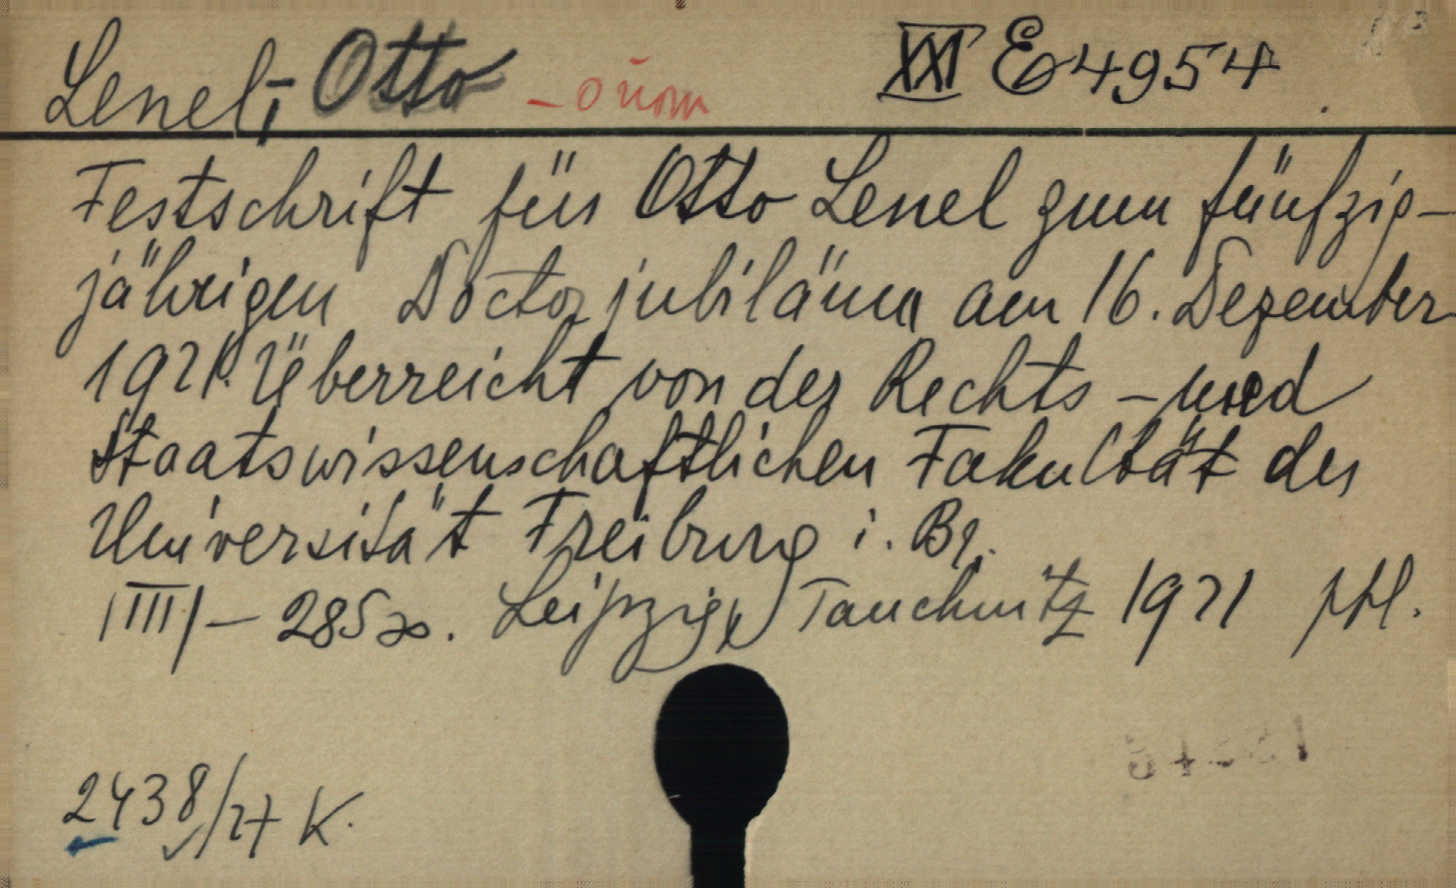 Lenel, Otto – o ňom XXI E 4954
Festschrift für Otto Lenel zum fünfzig-
jährigen Doctorjubiläum am 16. Dezember
1921. Überreicht von der Rechts- und
Staatswissenschaftlichen Fakultät der
Universität Freiburg i. Br.
IIII – 285 s. Leipzig, Tauchnitz 1921
2438/27 K.